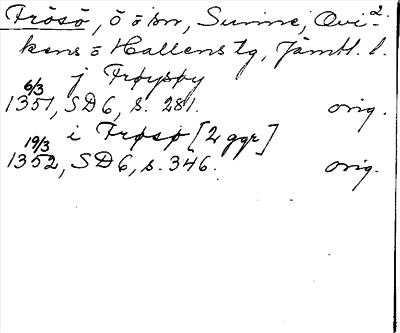 Frösö, ö o sn, Sunne, Ovi-
kens o Hallens tg, Jämtl. l.
j Frøysøy
1351 6/3, SD 6, s. 281. orig.
i Frøsø [2 ggr]
1352 19/3, SD 6, s. 346. orig.